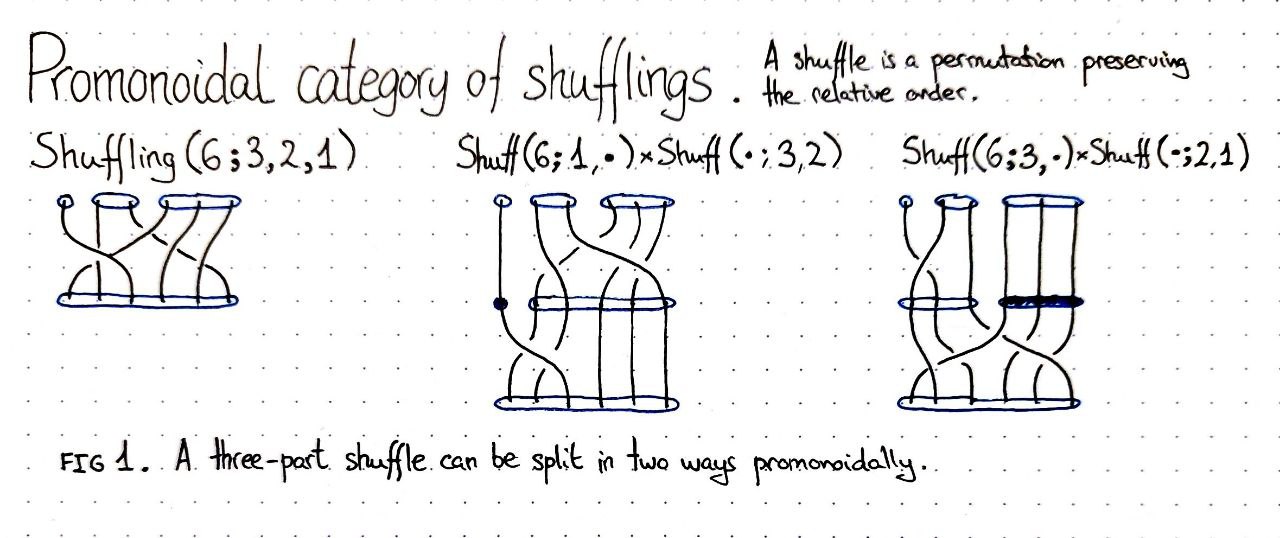 Promonoidal category of shufflings.
A shuffle is a permutation preserving
the relative order.
Shuffling (6;3,2,1)
Shuff(6;1,•)×Shuff(•;3,2)
Shuff(6;3,•)×Shuff(•;2,1)
FIG 1. A three-part shuffle can be split in two ways promonoidally.